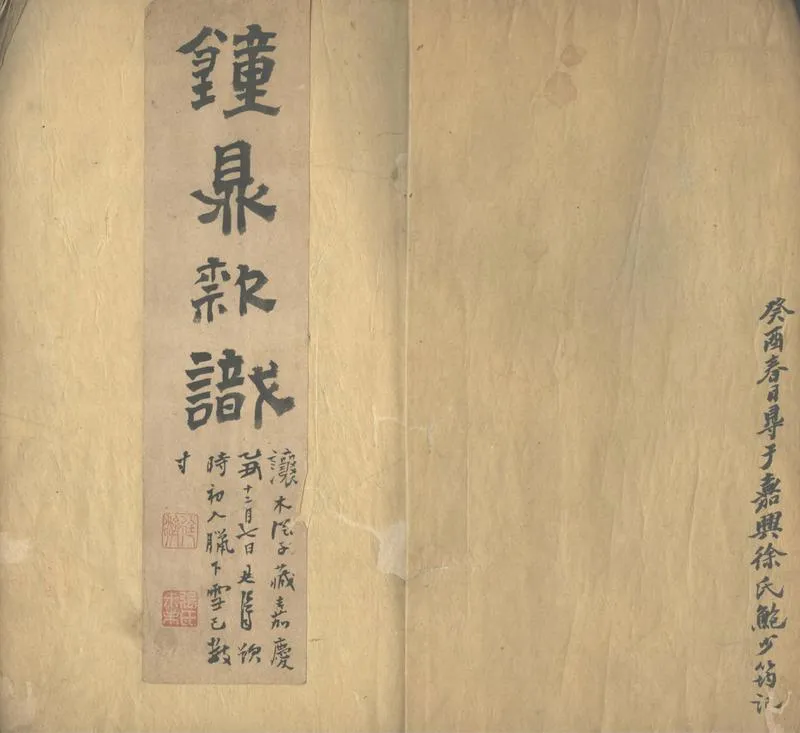 癸酉春日㝵于嘉興徐氏鮑少筠記
鐘鼎款識
讓木子藏嘉慶
十二月七日
時初入臘下雪已數
寸
廷濟